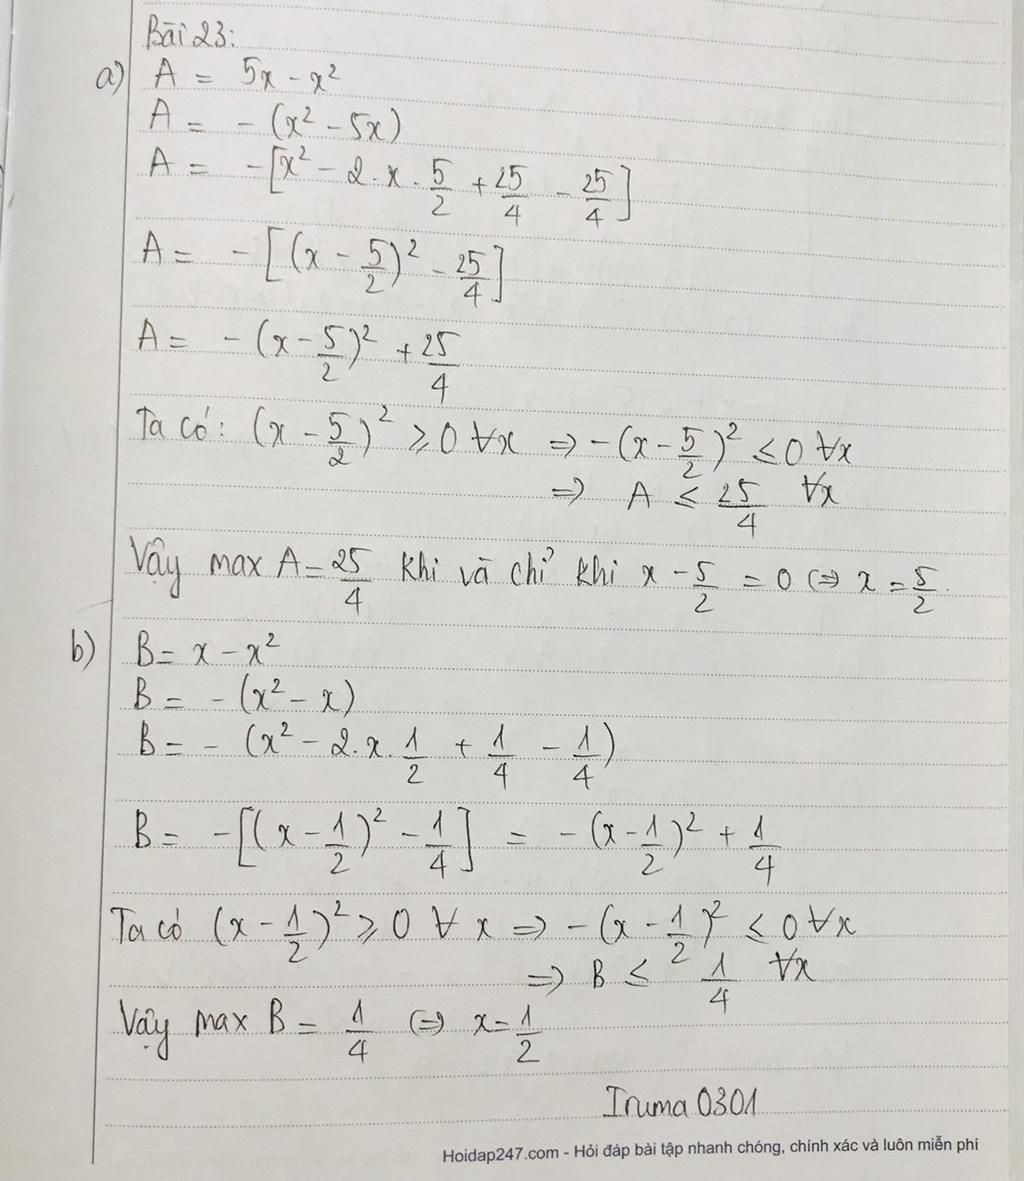 Bài 23:
a) A = 5x - x²
A = - (x² - 5x)
A = - [x² - 2.x.5/2 + 25/4 - 25/4]
A = - [(x - 5/2)² - 25/4]
A = - (x - 5/2)² + 25/4
Ta có: (x - 5/2)² ≥ 0 ∀x ⇒ - (x - 5/2)² ≤ 0 ∀x
⇒ A ≤ 25/4 ∀x
Vây max A = 25/4 khi và chỉ khi x - 5/2 = 0 ⇔ x = 5/2.
b) B = x - x²
B = - (x² - x)
B = - (x² - 2.x.1/2 + 1/4 - 1/4)
B = - [(x - 1/2)² - 1/4] = - (x - 1/2)² + 1/4
Ta có (x - 1/2)² ≥ 0 ∀ x ⇒ - (x - 1/2)² ≤ 0 ∀x
⇒ B ≤ 1/4 ∀x
Vậy max B = 1/4 ⇔ x = 1/2
Iruma 0301
Hoidap247.com - Hỏi đáp bài tập nhanh chóng, chính xác và luôn miễn phí